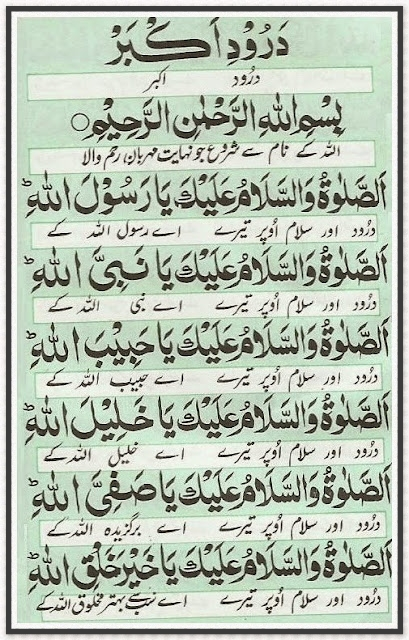 دَرُوْدِ اَكْبَرْ
درُود اکبر
بِسْمِ اللهِ الرَّحْمٰنِ الرَّحِيْمِ ○
اللہ کے نام سے شروع جو نہایت مہربان رحم والا
اَلصَّلٰوةُ وَالسَّلَامُ عَلَيْكَ يَا رَسُوْلَ اللهِ ؕ
درُود اور سلام اُوپر تیرے اے رسول اللہ کے
اَلصَّلٰوةُ وَالسَّلَامُ عَلَيْكَ يَا نَبِيَّ اللهِ ؕ
درُود اور سلام اُوپر تیرے اے نبی اللہ کے
اَلصَّلٰوةُ وَالسَّلَامُ عَلَيْكَ يَا حَبِيْبَ اللهِ ؕ
درُود اور سلام اُوپر تیرے اے حبیب اللہ کے
اَلصَّلٰوةُ وَالسَّلَامُ عَلَيْكَ يَا خَلِيْلَ اللهِ ؕ
درُود اور سلام اُوپر تیرے اے خلیل اللہ کے
اَلصَّلٰوةُ وَالسَّلَامُ عَلَيْكَ يَا صَفِيَّ اللهِ ؕ
درُود اور سلام اُوپر تیرے اے برگزیدہ اللہ کے
اَلصَّلٰوةُ وَالسَّلَامُ عَلَيْكَ يَا خَيْرَ خَلْقِ اللهِ ؕ
درُود اور سلام اُوپر تیرے اے سب سے بہتر مخلوق اللہ کے